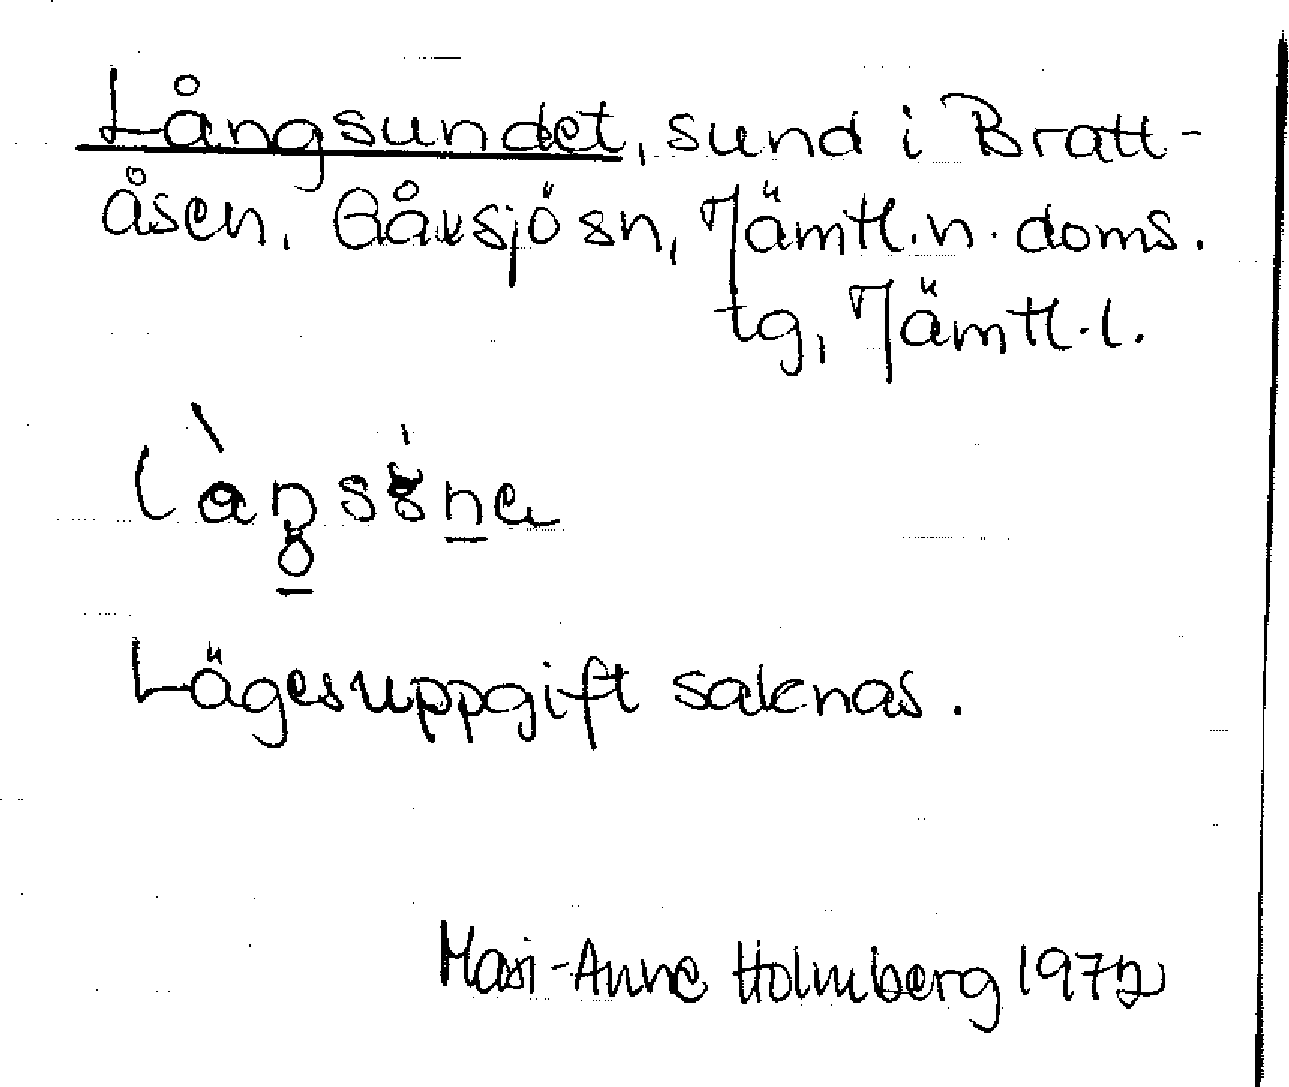 Långsundet, sund i Bratt-
åsen. Gåxsjö sn, Jämtl. n. doms.
tg, Jämtl. l.
Lägesuppgift saknas.
Mari-Anne Holmberg 1972